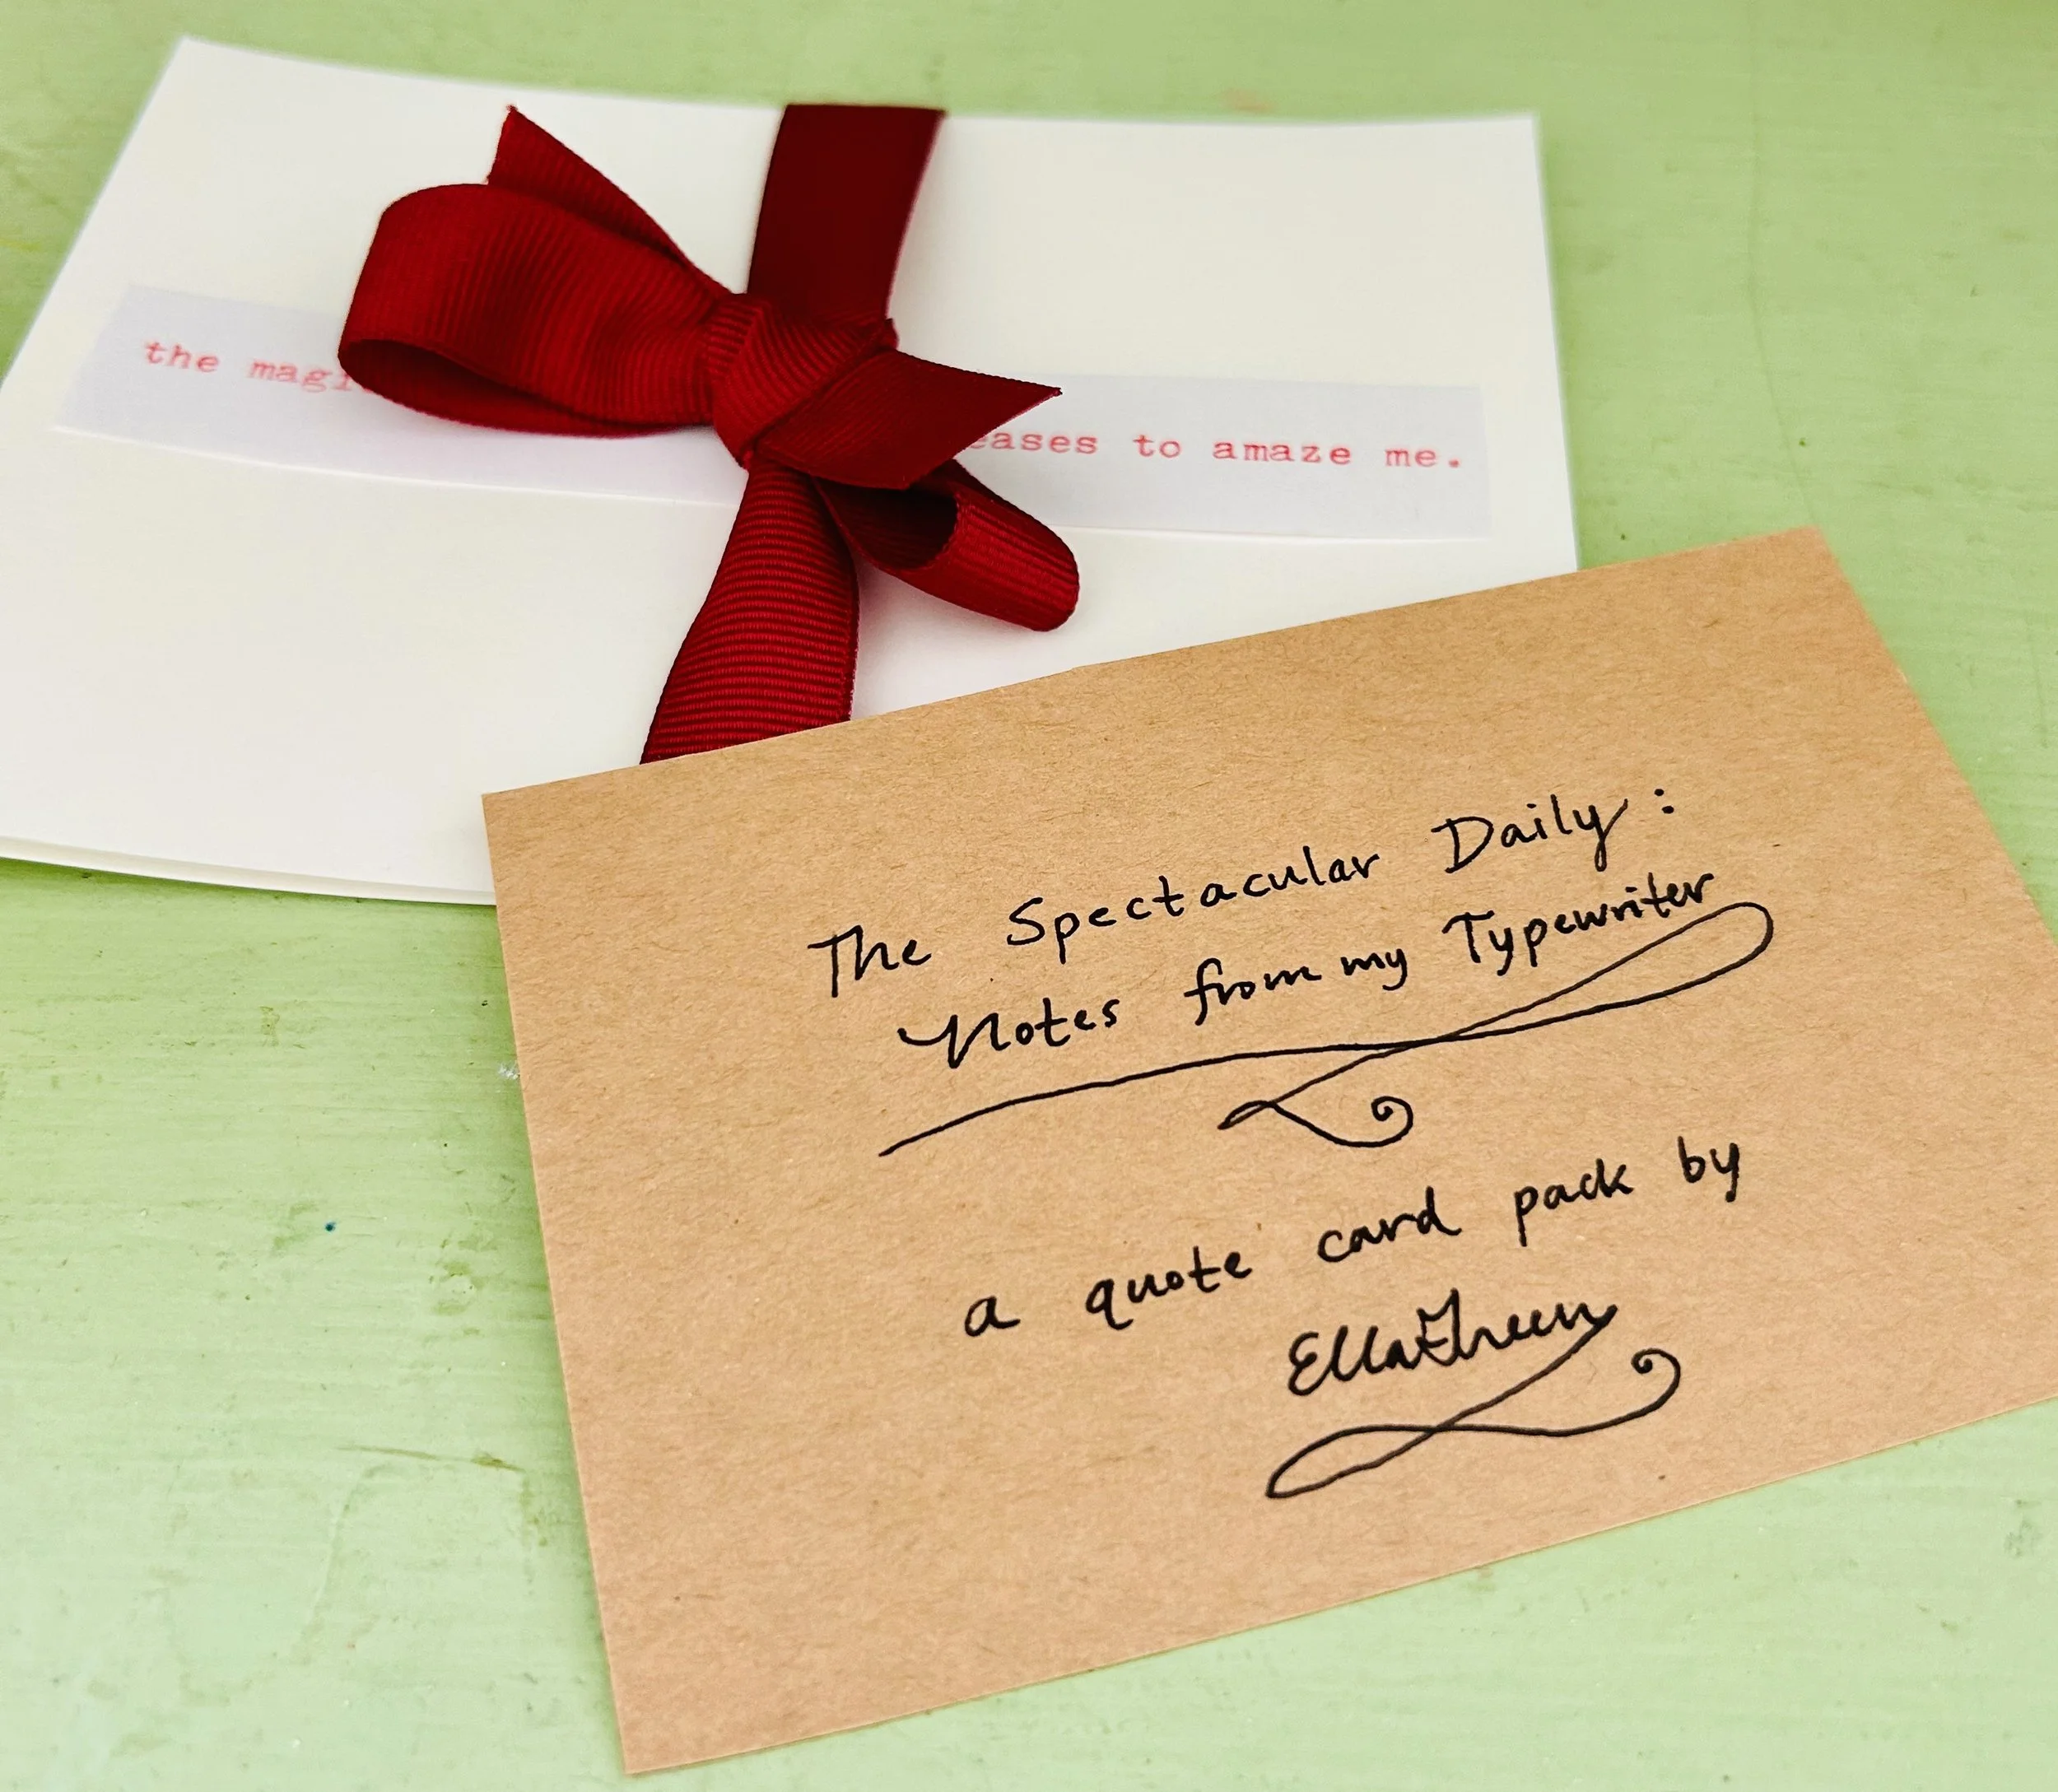 the magi eases to amaze me.
The Spectacular Daily:
Notes from my Typewriter
a quote card pack by